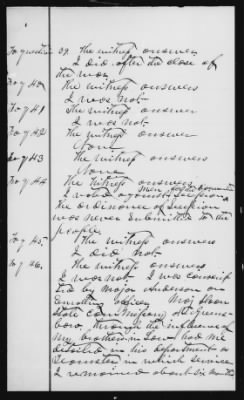 To question 39. The witness answers
I did after the close of
the war,
To q 40. The witness answers
I was not
To q 41 The witness answer
I was not
To q 42 The witness answer
None
To q 43 The witness answers
None
To q 44 The witness answers
I voted against
the ordinance of
was never submitted to the
people
To q 45. The witness answers
I did not
To q 46, The witness answers
I was not. I was conscrip
ted by Major Anderson an
Enrolling officer Maj Sloan
State of Greens-
boro, through the influence of
my brother in law had me
detailed in his department as
in which service
I remained about six months